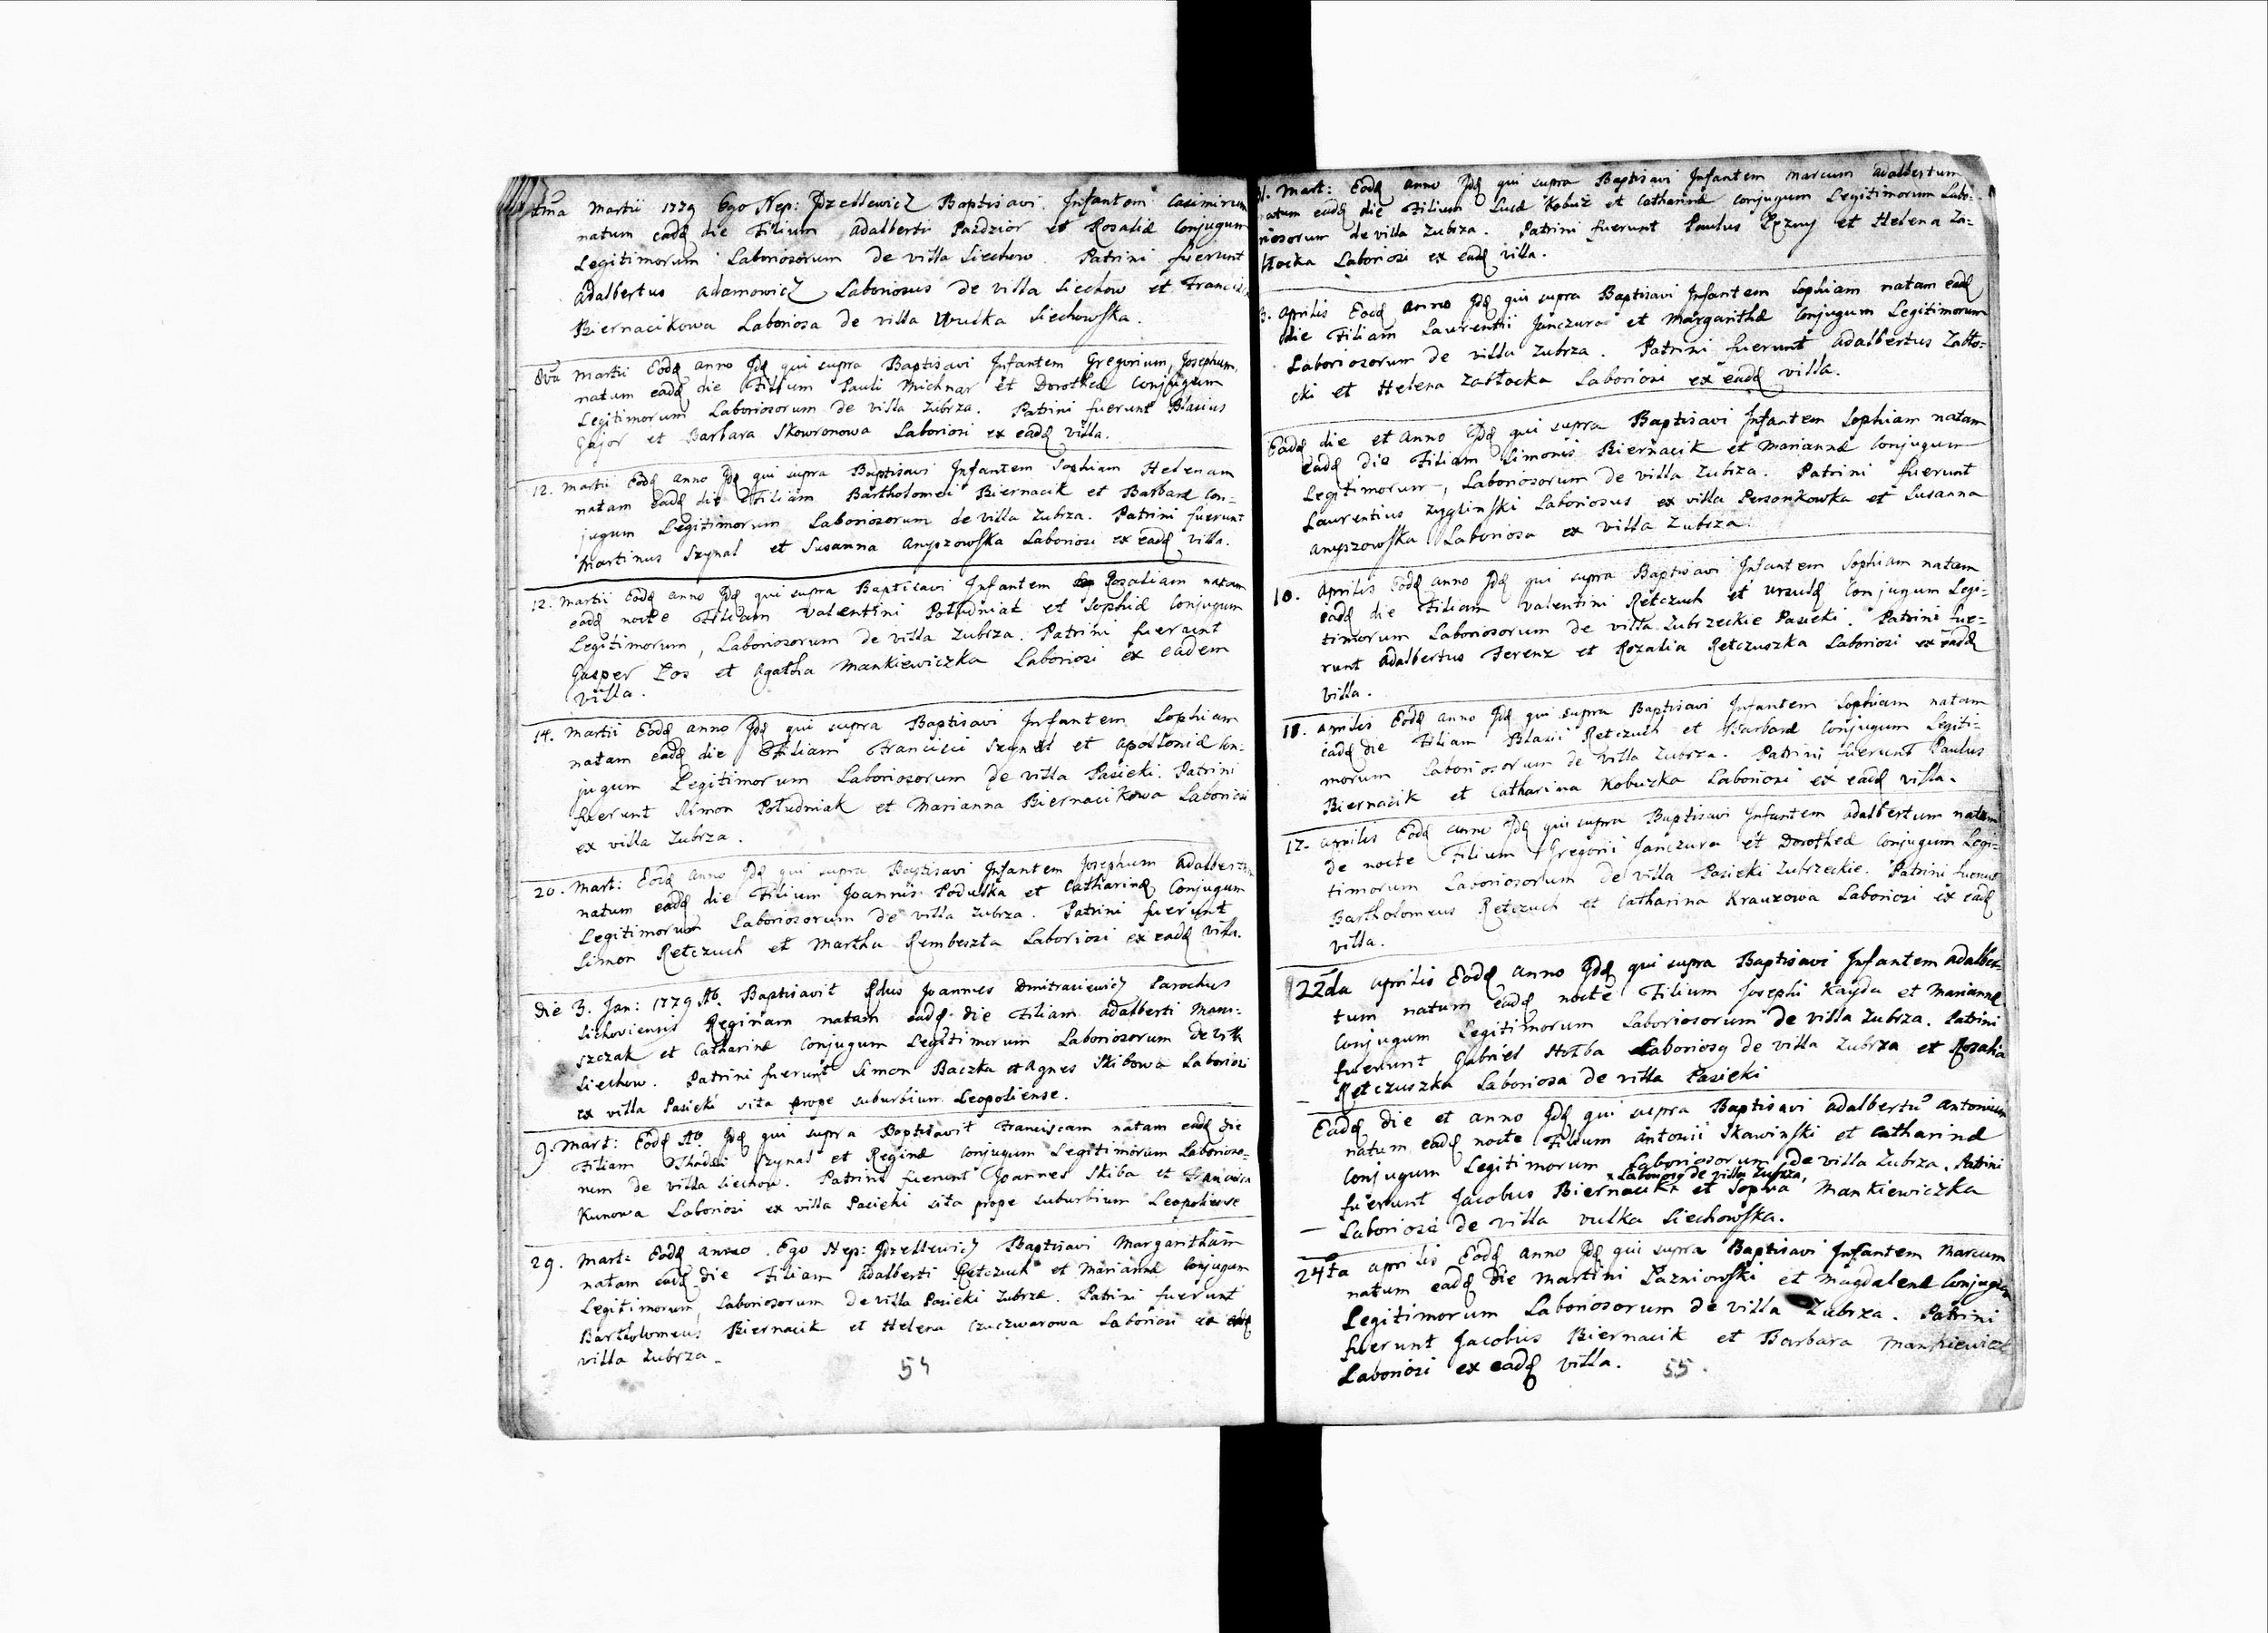 tma Martii 1779 Ego Nep: Jzedlewicz Baptisavi Infantem Casimirum
natum eadq die Filium Adalberti Pazdzior et Rosaliæ Conjugum
Legitimorum Laboriosorum de villa Siechow. Patrini fuerunt
Adalbertus Adamowicz Laboriosus de villa Siechow et
Biernacikowa Laboriosa de villa Wulka Siechowska.
8va Martii Eodq anno Idq qui supra Baptisavi Infantem Gregorium, Josephum,
natum eadq die Filium Pauli Michnar et Dorotheæ Conjugum
Legitimorum Laboriosorum de villa Zubrza. Patrini fuerunt Blasius
Gajor et Barbara Skowronowa Laboriosi ex eadq villa.
12. Martii Eodq anno Idq qui supra Baptisavi Infantem Sophiam Helenam
natam eadq die Filiam Bartholomei Biernacik et Barbaræ Con=
jugum Legitimorum Laboriosorum de villa Zubrza. Patrini fuerunt
Martinus Szynal et Susanna Anyszowska Laboriosi ex eadq villa.
12. Martii Eodq anno Idq qui supra Baptisavi Infantem Rosaliam natam
eadq nocte Filiam Valentini Południak et Sophiæ Conjugum
Legitimorum, Laboriosorum de villa Zubrza. Patrini fuerunt
Gasper Łos et Agatha Mankiewiczka Laboriosi ex eadem
villa.
14. Martii Eodq anno Idq qui supra Baptisavi Infantem Sophiam
natam eadq die Filiam Francisci Szynal et Apolloniæ Con=
jugum Legitimorum Laboriosorum de villa Pasieki. Patrini
fuerunt Simon Południak et Marianna Biernacikowa Laboriosi
ex villa Zubrza.
20. Mart: Eodq anno Idq qui supra Baptisavi Infantem Josephum Adalbertum
natum eadq die Filium Joannis Poduszka et Catharinæ Conjugum
Legitimorum Laboriosorum de villa Zubrza. Patrini fuerunt
Simon Retczuch et Martha Rembeszta Laboriosi ex eadq villa.
die 3. Jan: 1779 Ao. Baptisavit Rdus Joannes Dmitrasiewicz Parochus
Sichoviensis Reginam natam eadq die Filiam Adalberti Mani=
szczak et Catharinæ Conjugum Legitimorum Laboriosorum de villa
Siechow. Patrini fuerunt Simon Baczka et Agnes Skibowa Laboriosi
ex villa Pasieki sita prope suburbium Leopoliense.
9. Mart: Eodq Ao. Idq qui supra Baptisavit Franciscam natam eadq die
Filiam Thadei Szynal et Reginæ Conjugum Legitimorum Laborioso=
rum de villa Siechow. Patrini fuerunt Joannes Skiba et Francisca
Kunowa Laboriosi ex villa Pasieki sita prope suburbium Leopoliense
29. Mart: Eodq anno. Ego Nep: Jzedlewicz Baptisavi Margaritham
natam eadq die Filiam Adalberti Retczuch et Mariannæ Conjugum
Legitimorum, Laboriosorum de villa Pasieki Zubrzæ. Patrini fuerunt
Bartholomeus Biernacik et Helena Czuczwarowa Laboriosi ex eadq
villa Zubrza.
54
Mart: Eodq anno Idq qui supra Baptisavi Infantem Marcum Adalbertum
natum eadq die Filium Lucæ Kobuz et Catharinæ Conjugum Legitimorum Labo=
riosorum de villa Zubrza. Patrini fuerunt Paulus et Helena Za=
błocka Laboriosi ex eadq villa.
3. Aprilis Eodq anno Idq qui supra Baptisavi Infantem Sophiam natam eadq
die Filiam Laurentii Janczura et Margarithæ Conjugum Legitimorum
Laboriosorum de villa Zubrza. Patrini fuerunt Adalbertus Zabło=
cki et Helena Zabłocka Laboriosi ex eadq villa.
Eadq die et anno Idq qui supra Baptisavi Infantem Sophiam natam
eadq die Filiam Simonis Biernacik et Mariannæ Conjugum
Legitimorum, Laboriosorum de villa Zubrza. Patrini fuerunt
Laurentius Zyglinski Laboriosus ex villa Persenkowka et Susanna
Anyszowska Laboriosa ex villa Zubrza.
10. Aprilis Eodq anno Idq qui supra Baptisavi Infantem Sophiam natam
eadq die Filiam Valentini Retczuch et Ursulæ Conjugum Legi=
timorum Laboriosorum de villa Zubrzeckie Pasieki. Patrini fue=
runt Adalbertus Ferenz et Rozalia Retczuszka Laboriosi ex eadq
villa.
18. Aprilis Eodq anno Idq qui supra Baptisavi Infantem Sophiam natam
eadq die Filiam Blasii Retczuch et Barbaræ Conjugum Legiti=
morum Laboriosorum de villa Zubrza. Patrini fuerunt Paulus
Biernacik et Catharina Kobuzka Laboriosi ex eadq villa.
17. Aprilis Eodq anno Idq qui supra Baptisavi Infantem Adalbertum natum
de nocte Filium Gregorii Janczura et Dorotheæ Conjugum Legi=
timorum Laboriosorum de villa Pasieki Zubrzeckie. Patrini fuerunt
Bartholomeus Retczuch et Catharina Krauzowa Laboriosi ex eadq
villa.
22da Aprilis Eodq anno Idq qui supra Baptisavi Infantem Adalber=
tum natum eadq nocte Filium Josephi Kayda et Mariannæ
Conjugum Legitimorum Laboriosorum de villa Zubrza. Patrini
fuerunt Gabriel Hołba Laboriosq de villa Zubrza et Rosalia
Retczuszka Laboriosa de villa Pasieki
Eadq die et anno Idq qui supra Baptisavi Adalbertu Antonium
natum eadq nocte Filium Antonii Skawinski et Catharinæ
Conjugum Legitimorum Laboriosorum de villa Zubrza. Patrini
Laboriosq de villa Zubrza,
fuerunt Jacobus Biernacik et Sophia Mankiewiczka
Laboriosa de villa Vulka Siechowska.
24ta Aprilis Eodq anno Idq qui supra Baptisavi Infantem Marcum
natum eadq die Martini Pazniowski et Magdalenæ Conjugum
Legitimorum Laboriosorum de villa Zubrza. Patrini
fuerunt Jacobus Biernacik et Barbara
Laboriosi ex eadq villa.
55.